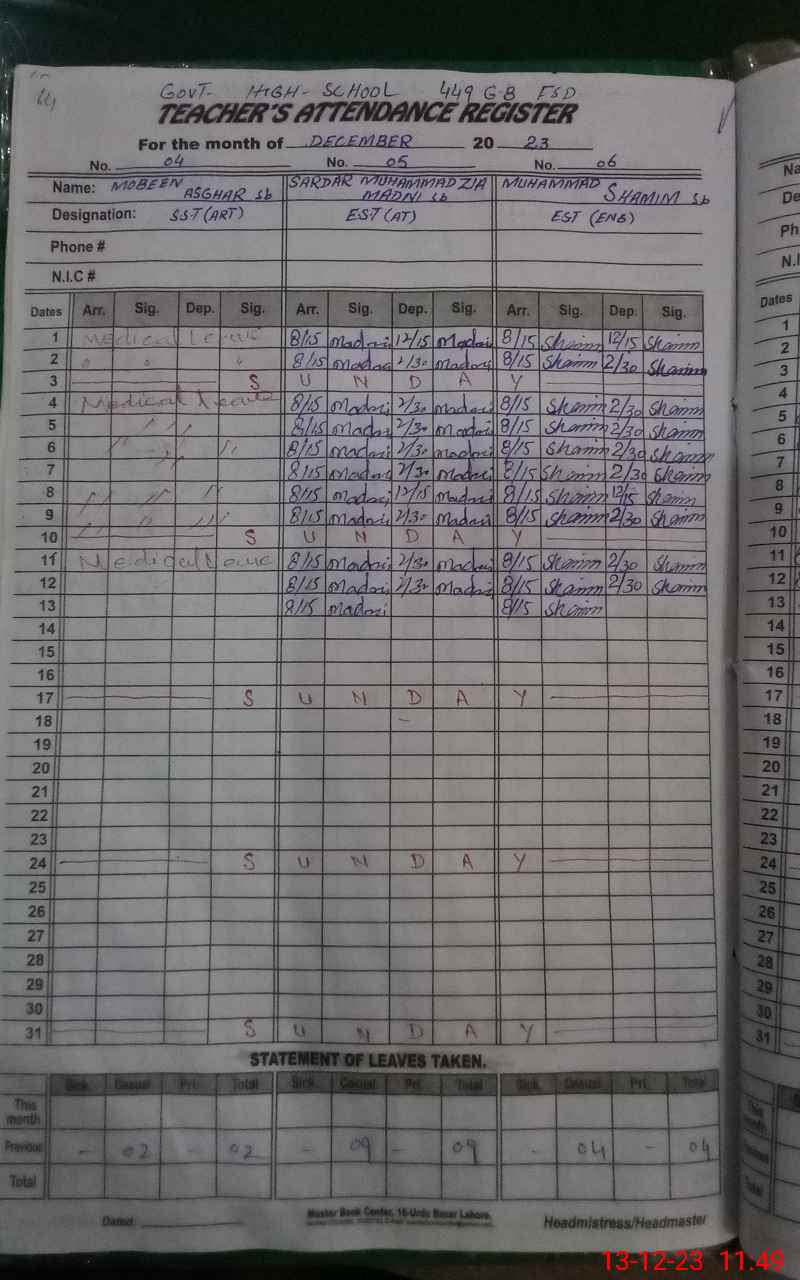 GOVT- HIGH- SCHOOL 449 G-B FSD
TEACHER'S ATTENDANCE REGISTER
For the month of DECEMBER 20 23
No. 04 No. 05 No. 06
Name: MOBEEN ASGHAR sb SARDAR MUHAMMAD ZIA MADNI sb MUHAMMAD SHAMIM sb
Designation: SST (ART) EST (AT) EST (ENG)
Phone #
N.I.C #
Dates Arr. Sig. Dep. Sig. Arr. Sig. Dep. Sig. Arr. Sig. Dep. Sig.
1 Medical Leave 8/15 Madni 12/15 Madni 8/15 Shamim 12/15 Shamim
2 " " " 8/15 Madni 2/30 Madni 8/15 Shamim 2/30 Shamim
3 S U N D A Y
4 Medical Leave 8/15 Madni 2/30 Madni 8/15 Shamim 2/30 Shamim
5 " 8/15 Madni 2/30 Madni 8/15 Shamim 2/30 Shamim
6 " " 8/15 Madni 2/30 Madni 8/15 Shamim 2/30 Shamim
7 " 8/15 Madni 2/30 Madni 8/15 Shamim 2/30 Shamim
8 " " " 8/15 Madni 12/15 Madni 8/15 Shamim 12/15 Shamim
9 " " " 8/15 Madni 2/30 Madni 8/15 Shamim 2/30 Shamim
10 S U N D A Y
11 Medical Leave 8/15 Madni 2/30 Madni 8/15 Shamim 2/30 Shamim
12 8/15 Madni 2/30 Madni 8/15 Shamim 2/30 Shamim
13 8/15 Madni 8/15 Shamim
14
15
16
17 S U N D A Y
18 -
19
20
21
22
23
24 S U N D A Y
25
26
27
28
29
30
31 S U N D A Y
STATEMENT OF LEAVES TAKEN.
Sick. Casual Pri. Total Sick. Casual Pri. Total Sick. Casual Pri. Total
This month
Previous - 02 - 02 - 09 - 09 - 04 - 04
Total
Dated:
Master Book Center, 16-Urdu Bazar Lahore.
Headmistress/Headmaster
Na
De
Ph
N.I
Dates
1
2
3
4
5
6
7
8
9
10
11
12
13
14
15
16
17
18
19
20
21
22
23
24
25
26
27
28
29
30
31
13-12-23 11.49